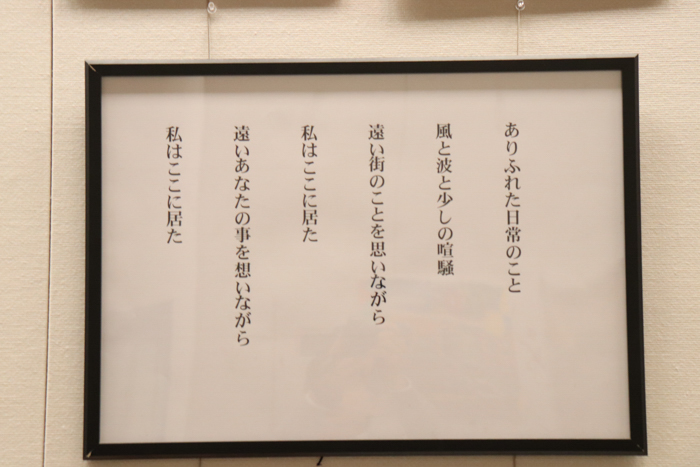 ありふれた日常のこと
風と波と少しの喧騒
遠い街のことを思いながら
私はここに居た
遠いあなたの事を想いながら
私はここに居た